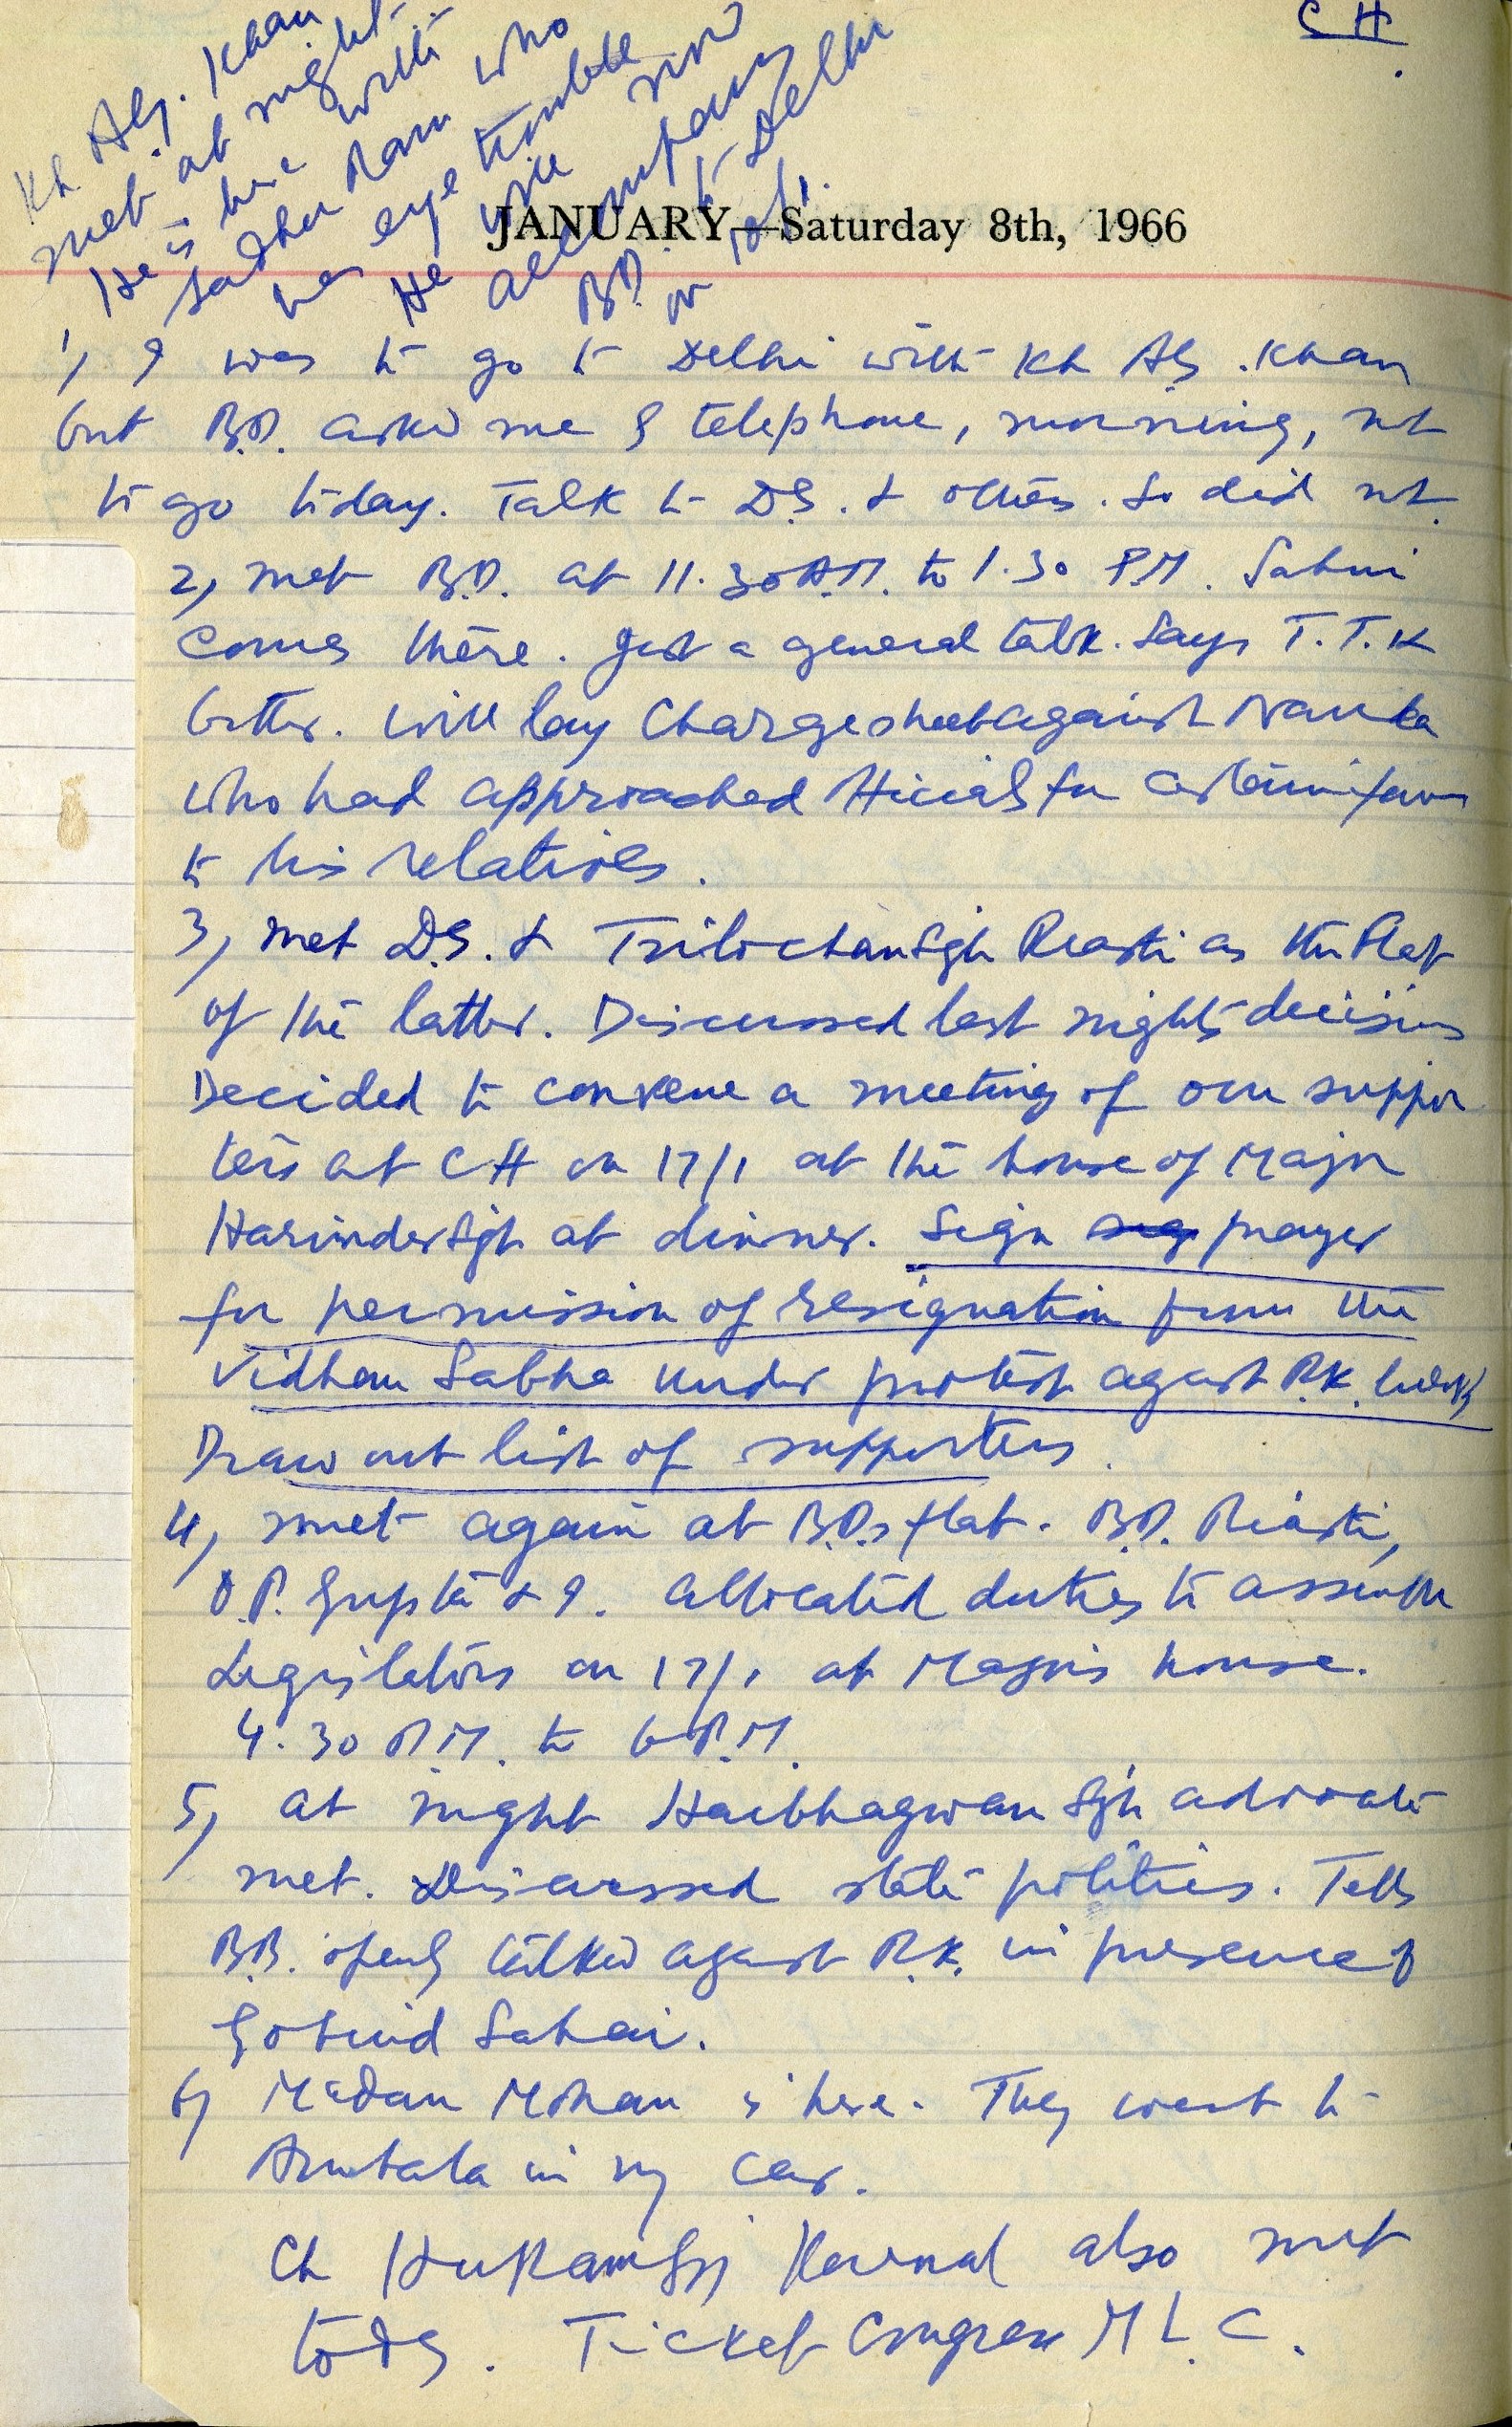 C H
Kh Alg. Khan
met at night.
He is here with
Sadhu Ram who
has eye trouble
He will now
accompany
B.D. to Delhi
on 10/1.
JANUARY—Saturday 8th, 1966
1, I was to go to Delhi with Kh Alg. Khan
but B.D. asked me & telephone, morning, not
to go today. Talk to D.S. & others. So did not.
2, met B.D. at 11.30 A.M. to 1.30 P.M. Sahni
comes there. Just a general talk. Says T.T.K
better. Will lay Chargesheet against Nanda
who had approached for certain favours
to his relatives.
3, met D.S. & Trilochan Sgh Reasti as the flat
of the latter. Discussed last nights decisions
Decided to convene a meeting of our suppor
ters at CH on 17/1 at the house of Major
Harinder Sgh at dinner. Sign prayer
for permission of resignation from the
Vidhan Sabha under protest against R.K.
Draw out list of supporters.
4, met again at B.D.s flat. B.D. Riasti,
O.P. Gupta & I. allocated duties to assemble
Legislators on 17/1 at Majors house.
4.30 P.M. to 6 P.M.
5, at night Harbhagwan Sgh advocate
met. Discussed state politics. Tells
B.B. openly talked against R.K. in presence of
Gobind Sahai.
6, Madan Mohan is here. They went to
Ambala in my car.
Ch Hukam Sgh Karnal also met
today. Ticket Congress M L C.